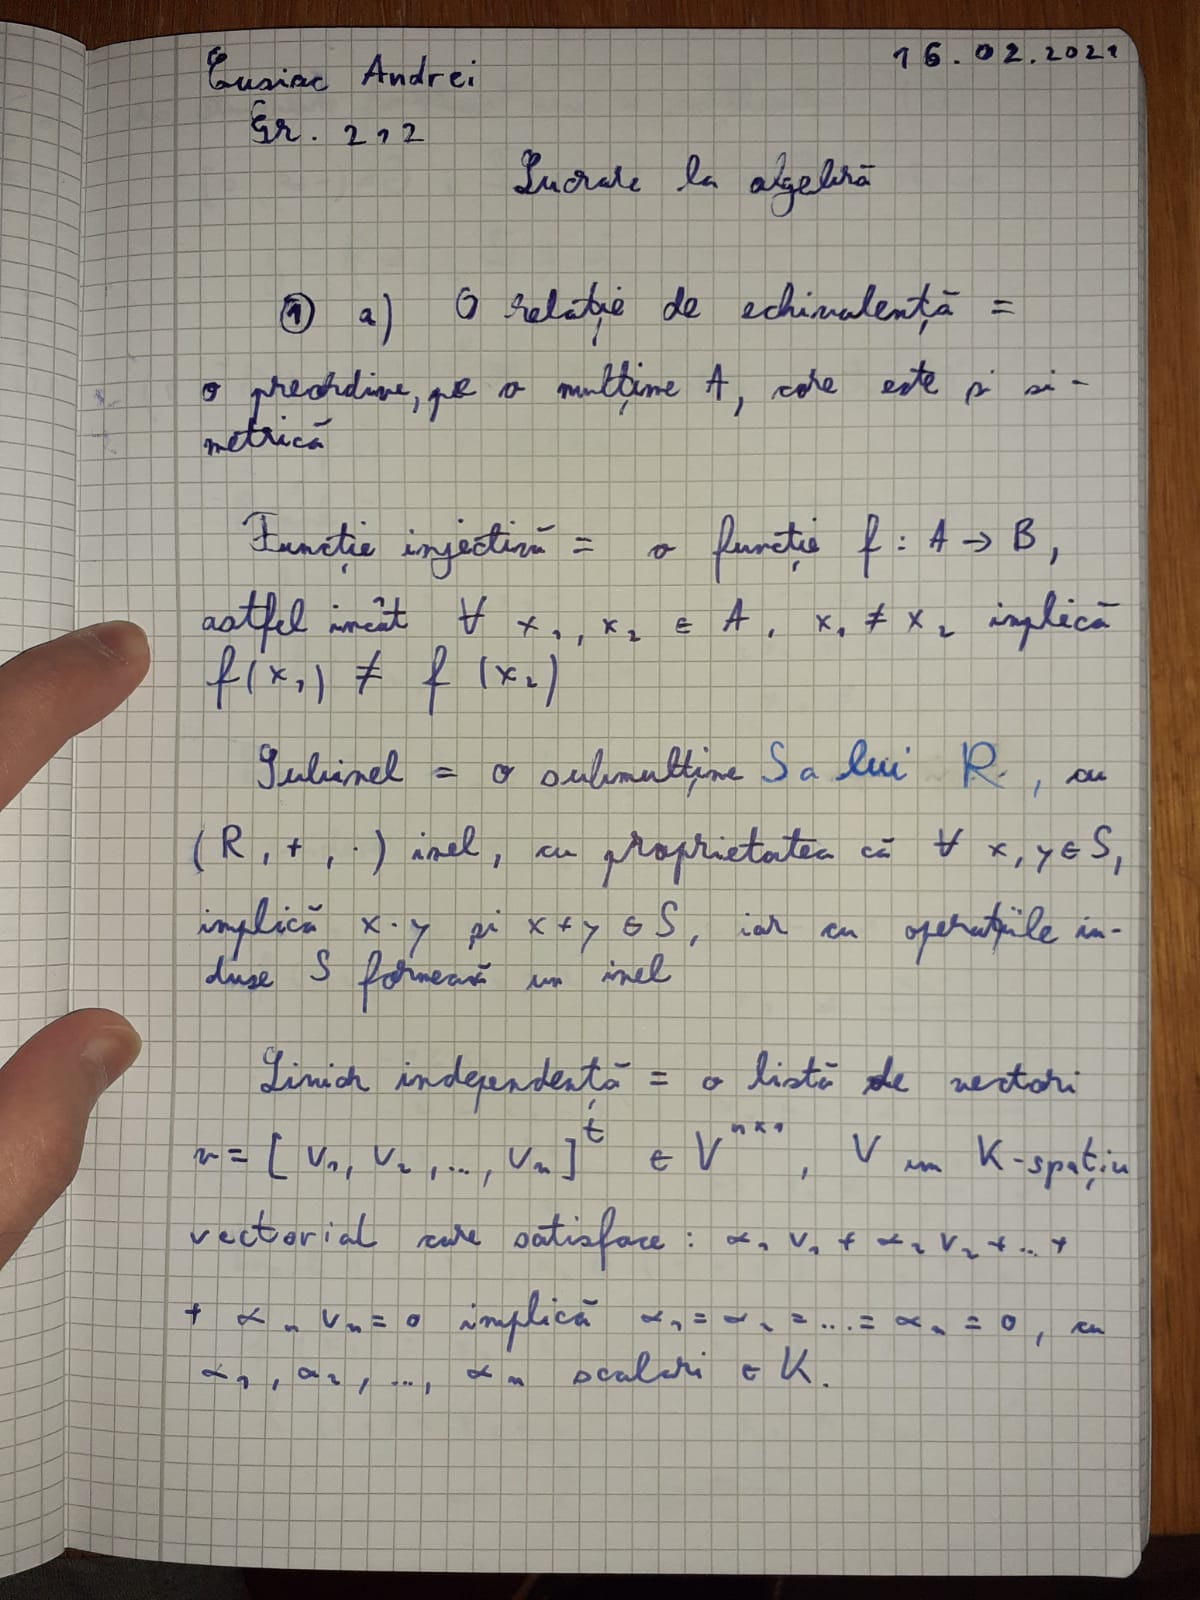 Andrei
16.02.2021
Gr. 212
Lucrare la algebră
① a) O relație de echivalență =
o preordine, pe o mulțime A, care este și si-
metrică
Funcție injectivă = o funcție f : A → B,
astfel încât ∀ x₁, x₂ ∈ A, x₁ ≠ x₂ implică
f(x₁) ≠ f(x₂)
Subinel = o submulțime S a lui R, cu
(R, +, ·) inel, cu proprietatea că ∀ x, y ∈ S,
implică x·y și x+y ∈ S, iar cu operațiile in-
duse S formează un inel
Liniar independentă = o listă de vectori
v = [v₁, v₂, ..., vₙ]ᵗ ∈ Vⁿˣ¹, V un K-spațiu
vectorial care satisface: α₁v₁ + α₂v₂ + ... +
+ αₙvₙ = 0 implică α₁ = α₂ = ... = αₙ = 0, cu
α₁, α₂, ..., αₙ scalari ∈ K.